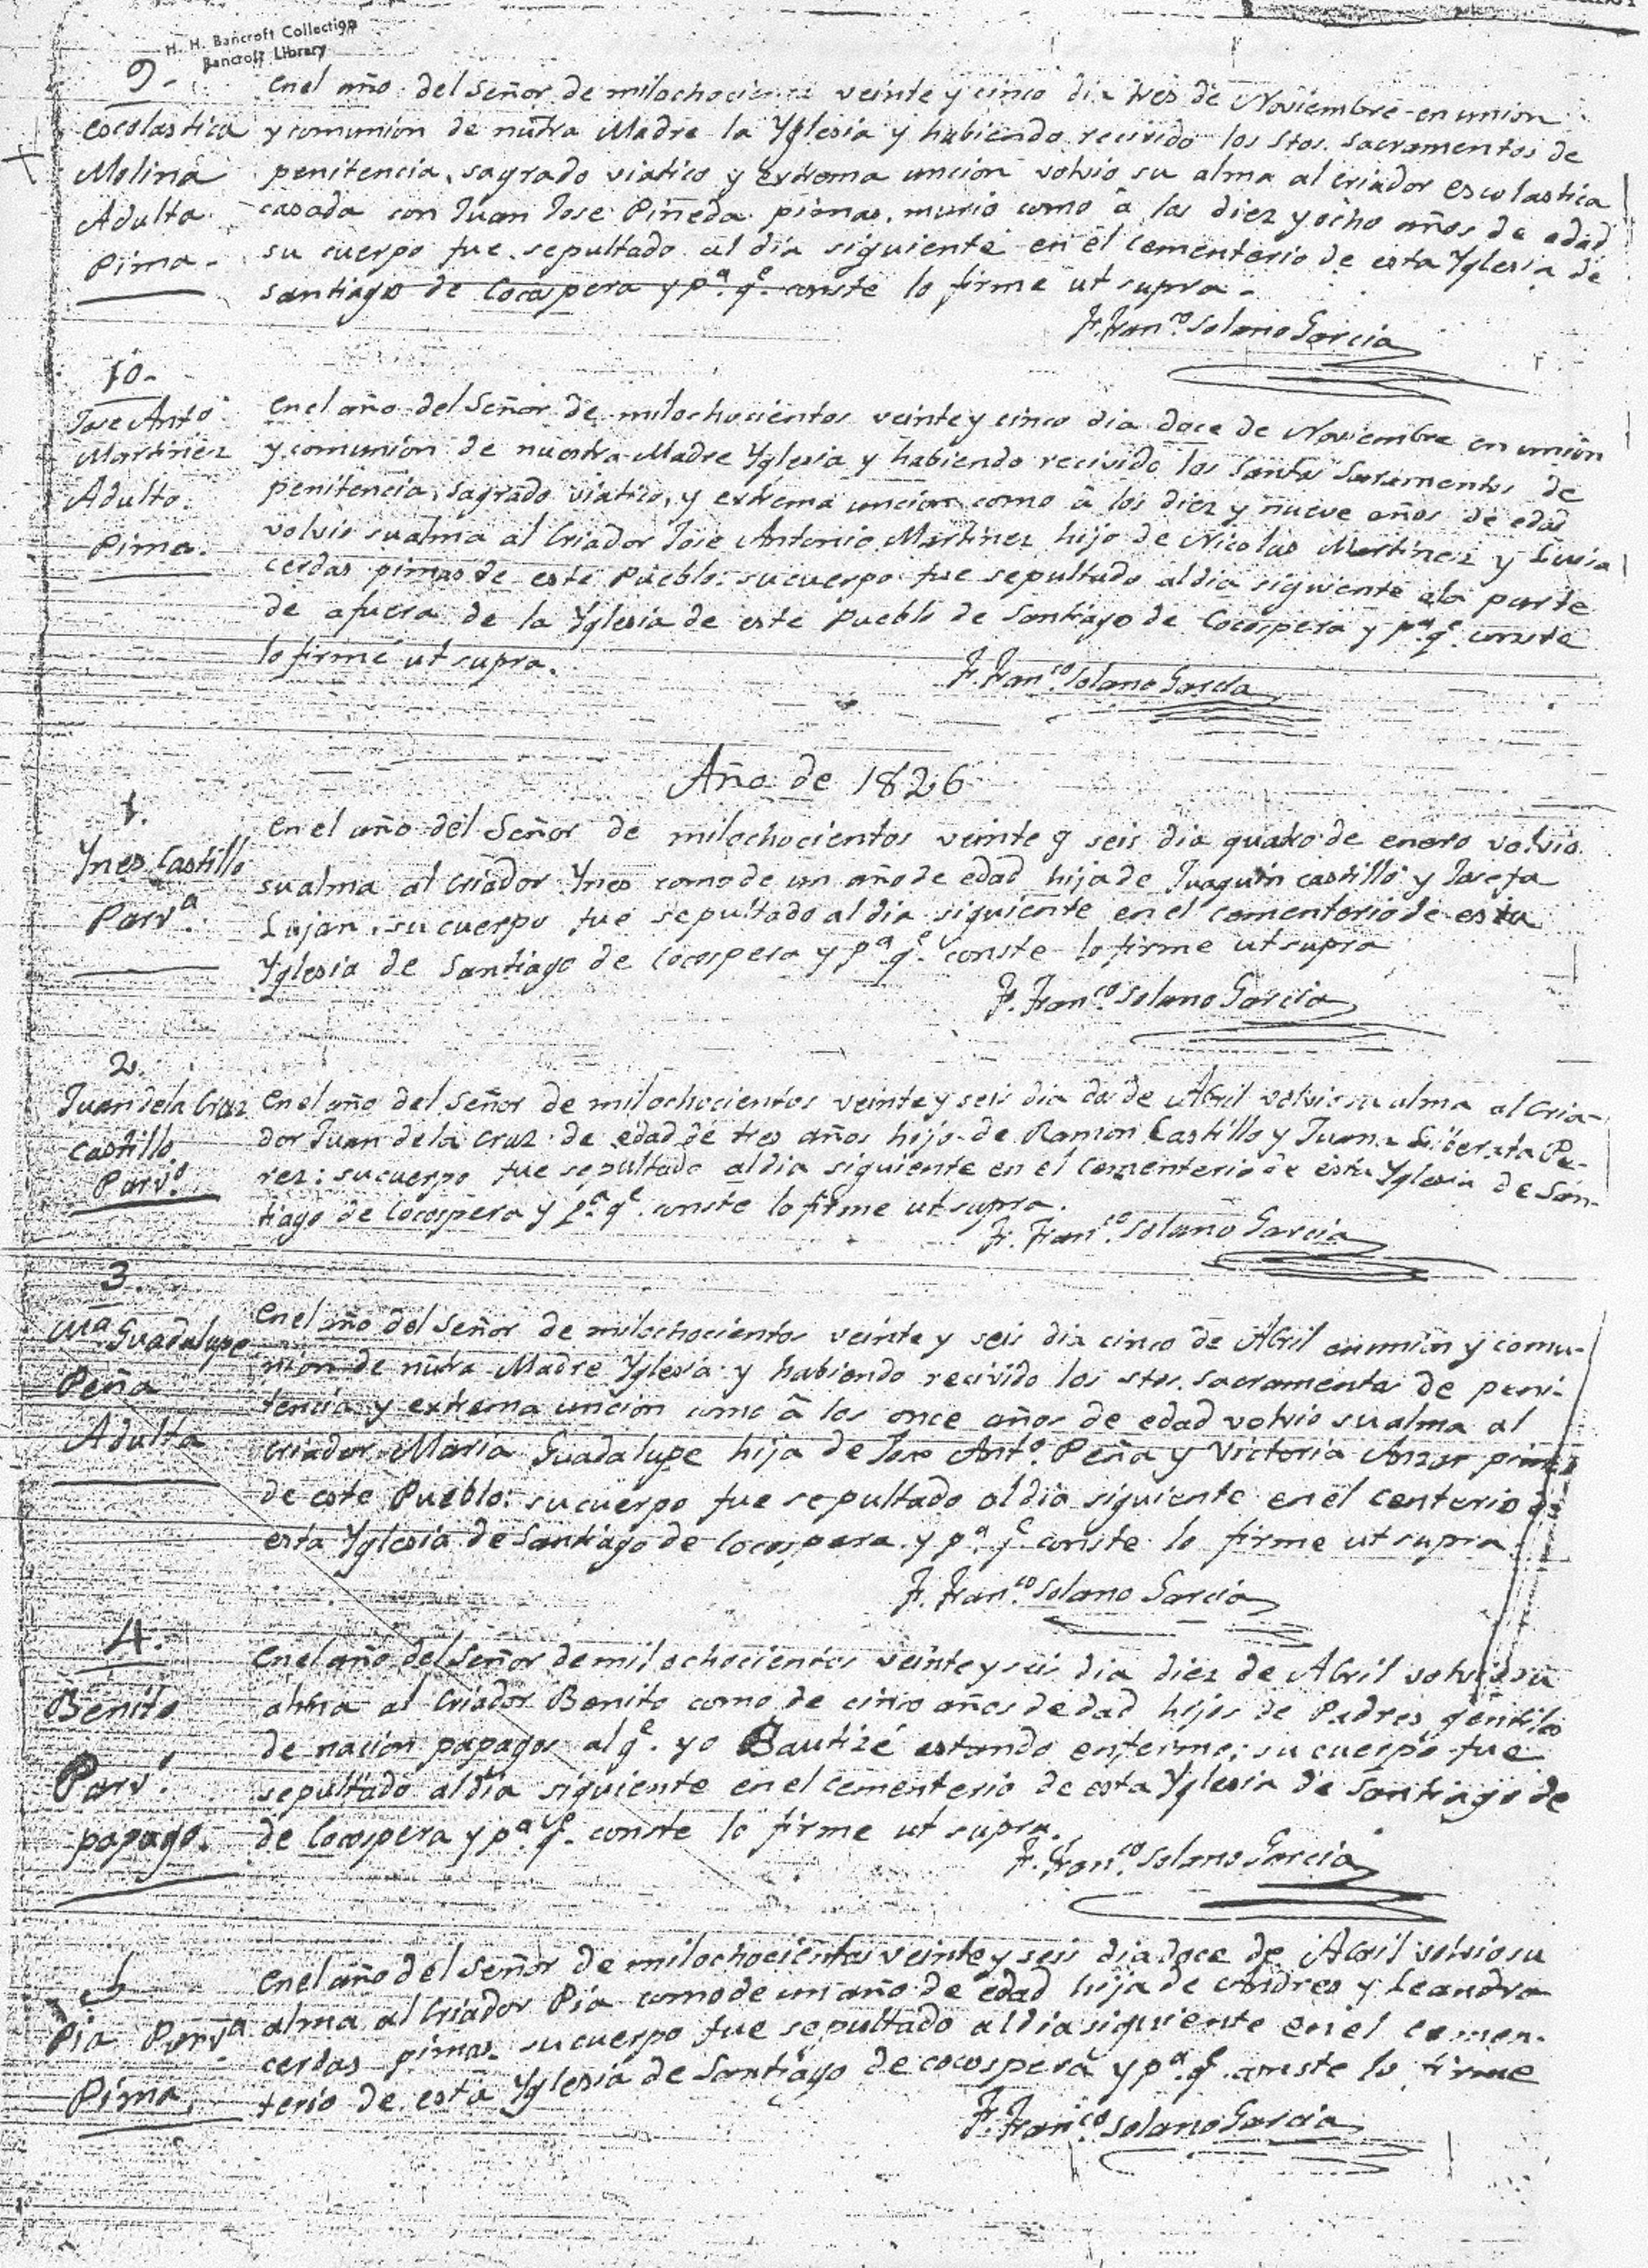 H. H. Bancroft Collection
Bancroft Library
9.
escolastica
Molina
Adulta
Pima.
En el año del Señor de milochocientos veinte y cinco dia tres de Noviembre en union
y comunion de nutra Madre la Yglesia y habiendo recivido los Stos. Sacramentos de
penitencia, sagrado viatico y extrema uncion volvio su alma al criador escolastica
casada con Juan Jose Piñeda pimas, murio como â los diez y ocho años de edad
su cuerpo fue sepultado al dia siguiente en el cementerio de esta Yglesia de
Santiago de Cocospera y pª. qᵉ. conste lo firme ut supra.
Fr. Franᶜᵒ. Solano Garcia
10.
Jose Antᵒ
Martinez
Adulto.
Pima.
En el año del Señor de milochocientos veinte y cinco dia doce de Noviembre en union
y comunion de nuestra Madre Yglesia y habiendo recivido los Santos Sacramentos de
penitencia, sagrado viatico, y extrema uncion como â los diez y nueve años de edad
volvio su alma al Criador Jose Antonio Martinez hijo de Nicolas Martinez y Luisa
cerdas pimas de este Pueblo: su cuerpo fue sepultado al dia siguiente a la parte
de afuera de la Yglesia de este Pueblo de Santiago de Cocospera y pª. qᵉ. conste
lo firme ut supra.
Fr. Franᶜᵒ. Solano Garcia
Año de 1826
1.
Ynes Castillo
Parvª.
En el año del Señor de milochocientos veinte y seis dia quatro de enero volvio
su alma al Criador Ynes como de un año de edad hija de Juaquin castillo y Josefa
Lujan, su cuerpo fue sepultado al dia siguiente en el cementerio de esta
Yglesia de Santiago de Cocospera y pª. qᵉ. conste lo firme ut supra
Fr. Franᶜᵒ. Solano Garcia
2.
Juan de la Cruz
castillo
Parvᵒ.
En el año del Señor de milochocientos veinte y seis dia dos de Abril volvio su alma al Cria-
dor Juan de la Cruz de edad de tres años hijo de Ramon Castillo y Juana Liberata Pe-
rez: su cuerpo fue sepultado al dia siguiente en el cementerio de esta Yglesia de San-
tiago de Cocospera y pª. qᵉ. conste lo firme ut supra.
Fr. Franᶜᵒ. Solano Garcia
3.
Mª Guadalupe
Peña
Adulta
En el año del Señor de milochocientos veinte y seis dia cinco de Abril en union y comu-
nion de nutra Madre Yglesia y habiendo recivido los stos. sacramentos de peni-
tencia y extrema uncion como â los once años de edad volvio su alma al
criador Maria Guadalupe hija de Jose Antᵒ. Peña y Victoria Anzar pimas
de este Pueblo: su cuerpo fue sepultado al dia siguiente en el centerio de
esta Yglesia de Santiago de Cocospera y pª. qᵉ conste lo firme ut supra.
Fr. Franᶜᵒ. Solano Garcia
4.
Benito
Parvᵒ.
papago.
En el año del Señor de milochocientos veinte y seis dia diez de Abril volvio su
alma al Criador Benito como de cinco años de edad hijo de Padres gentiles
de nacion papagos al qᵉ. yo Bautizé estando enfermo; su cuerpo fue
sepultado al dia siguiente en el cementerio de esta Yglesia de Santiago de
de Cocospera y pª. qᵉ. conste lo firme ut supra.
Fr. Franᶜᵒ. Solano Garcia
5
Pia Parvª
Pima.
En el año del Señor de milochocientos veinte y seis dia doce de Abril volvio su
alma al Criador Pia como de un año de edad hija de Andres y Leandra
cerdas pimas su cuerpo fue sepultado al dia siguiente en el cemen-
terio de esta Yglesia de Santiago de cocospera y pª. qᵉ. conste lo firme
Fr. Franᶜᵒ. Solano Garcia